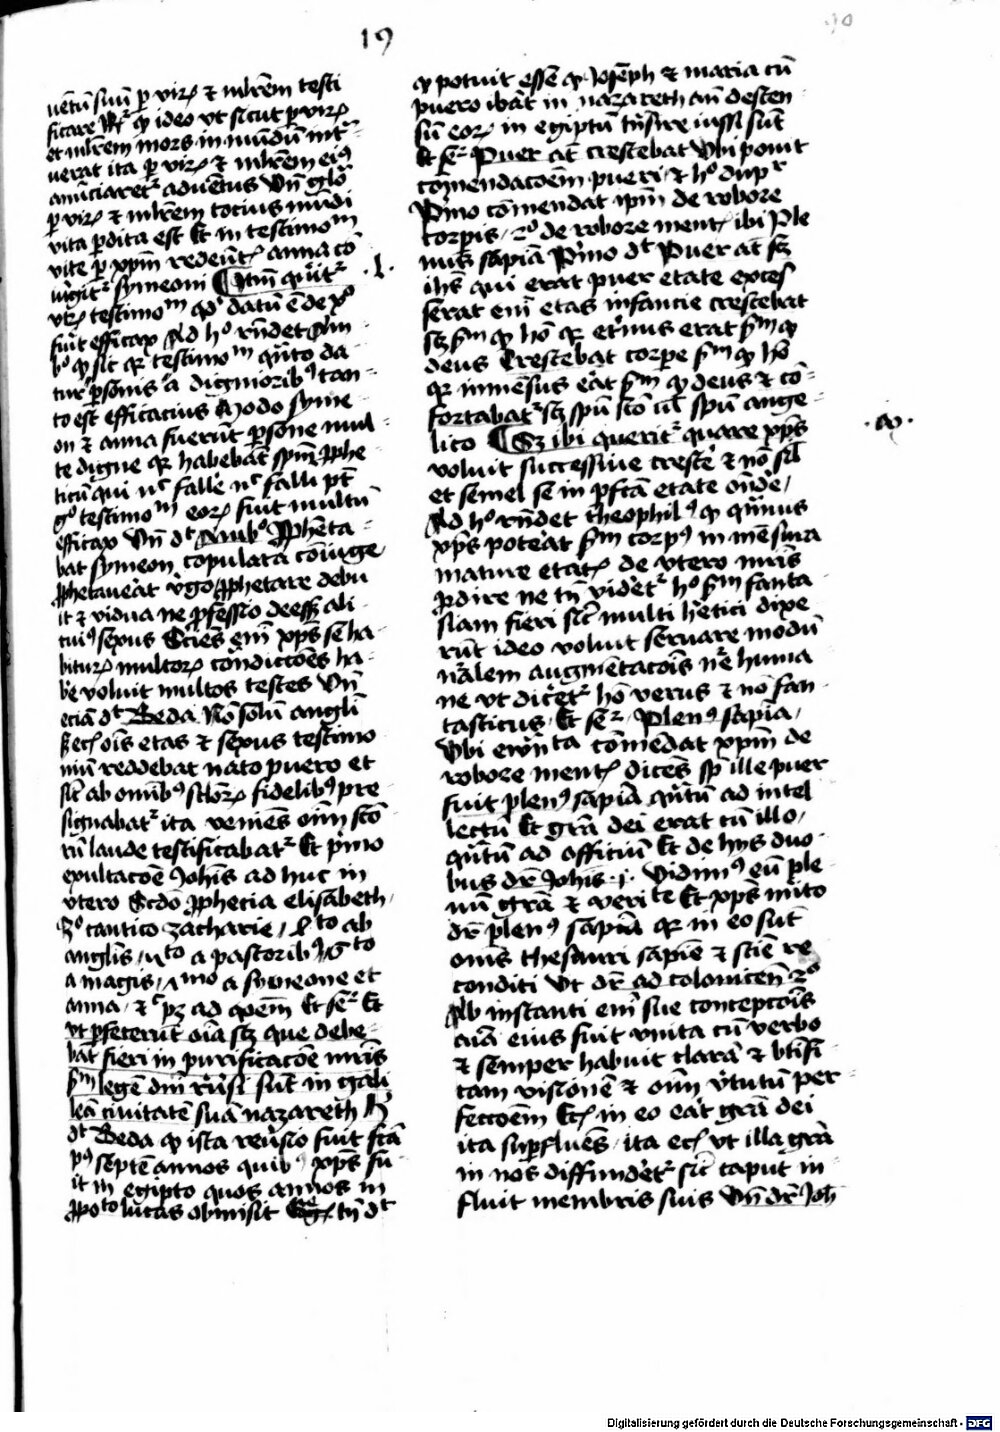 19
ventū suū p viꝝ et mlr̄em testi
ficare Rr̄ ideo vt sicut p viꝝ
et mlr̄em mors in mūdū int̄
verat ita p viꝝ et mlr̄em eiꝰ
anūciaretur aduētus Vn̄ glo
p viꝝ et mlr̄em tocius mūdi
vita pdita est Et in testimom
vite p xpm̄ redeūt anna cō
iūgitur symeoni Itm̄ querit
.l.
vtꝝ testimom qd datū ē de xpo
fuit efficax Ad ho rn̄det
ho sic testimom qn̄to da
tur psonis dignioribꝰ tan
to est efficacius Modo syme
on et anna fuerūt psone mul
te digne habebāt spm̄ pphe
ticū qui nec fallē nec falli pn̄t
go testimom eoꝝ fuit multū
efficax Vn̄ dt Ambo ppheta
bat symeon copulata cōiuge
pphetauēat vgo pphetare debu
it et vidua ne pfessio deesset ali
tuiꝰ sexus em̄ xps se ha
bituꝝ multoꝝ cōdiccōes ha
bē voluit multos testes Vn̄
eciā dt Beda Nō solū angli
ois etas et sexus testimo
niū reddebat nato puero et
sic ab omībꝰ fidelibꝰ pre
signabatur ita veniēs oīm scō
rū laude testificabatur Et pimo
exultacōe Johīs ad huc in
vtero Scdo pphecia elisabeth
3o cantico zacharie 4to ab
anglis 5to a pastoribꝰ 6to
a magis 7mo a symeone et
anna ad Et sequitur Et
vt pfecerūt oīa scz que debe
bāt fieri in purificacōe mr̄is
scdm legē dnī rūsi sūt in gali
leā ciuitatē suā nazareth
dt Beda ista reūsio fuit fcā
pꝰ septē annos quibꝰ xps fu
it in egipto quos annos in
lucas obmisit tn̄ dt
potuit esse Joseph et maria cū
puero ibāt in nazareth an̄ descen
sū eoꝝ in egiptū trīsire iussi sūt
Et sequitur Puer at̄ crescebat Vbi ponit
comendacoēm pueri et ho dupr
Pimo cōmendat ipm̄ de robore
corpis 2o de robore ment ibi Ple
nus sapiā Pimo dt Puer at̄ scz
ihs qui erat puer etate exces
serat em̄ etas infancie crescebat
scz scdm hō etnus erat scdm
deus Crescebat corpe scdm hō
inmēsus eat scdm deus et cō
fortabatur scz spū sctō vl̄ spū ange
lico Scz ibi querit quare xps
.ao.
voluit successiue crescē et nō sil
et semel se in pfcā etate ondē
Ad ho rn̄det theophilꝰ quīuis
xps poteat scdm corpꝰ in mēsura
mature etat de vtero mr̄is
pdire ne tn̄ videtur ho scdm fanta
siam fieri sic multi hetici dixe
rūt ideo voluit seruare modū
nr̄alem augmētacōis nr̄e huma
ne vt dicetur hō verus et nō fan
tasticus Et sequitur Plenꝰ sapiā
Vbi cōmēdat xpm̄ de
robore ment dicēs ille puer
fuit plenꝰ sapiā qn̄tū ad intel
lectū Et grā dei erat cū illo
qn̄tū ad officiū Et de hijs duo
bus dr̄ Johīs .i. Vidimꝰ eū ple
nū grā et verite Et xps mito
dr̄ plenꝰ sapiā in eo sūt
oms thesauri sapie et scie re
conditi Vt dr̄ ad colonicen 2o
Ab instanti em̄ sue concepcōis
aīā eius fuit vnita cū verbo
et semper habuit clarā et btifi
cam visionē et oīm vtutū per
feccoēm in eo eat grā dei
ita supfluēs ita vt illa grā
in nos diffundetur sic caput in
fluit membris suis Vn̄ dr̄ Joh
Digitalisierung gefördert durch die Deutsche Forschungsgemeinschaft - DFG